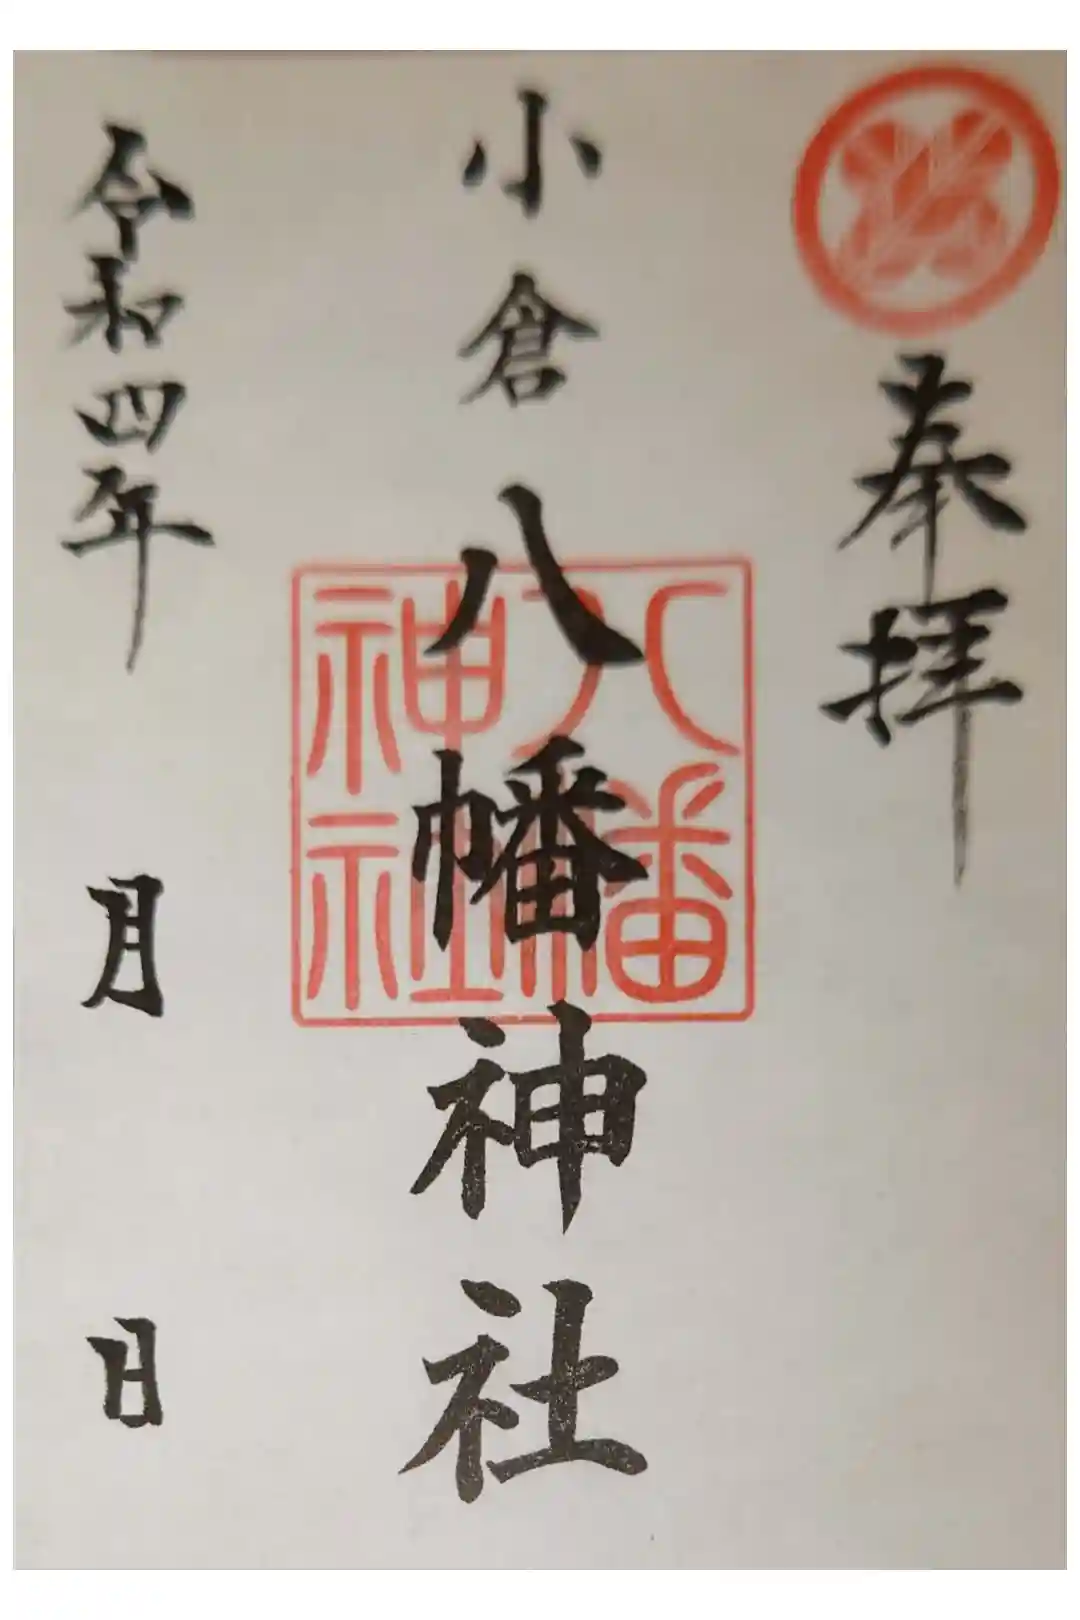 奉拝
小倉八幡神社
八幡神社
令和四年 月 日